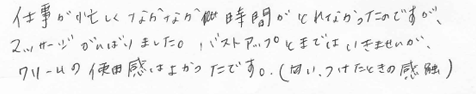 仕事が忙しくなかなか時間がとれなかったのですが、
マッサージがんばりました。バストアップとまではいきませんが、
クリームの使用感はよかったです。(匂い、つけたときの感触)